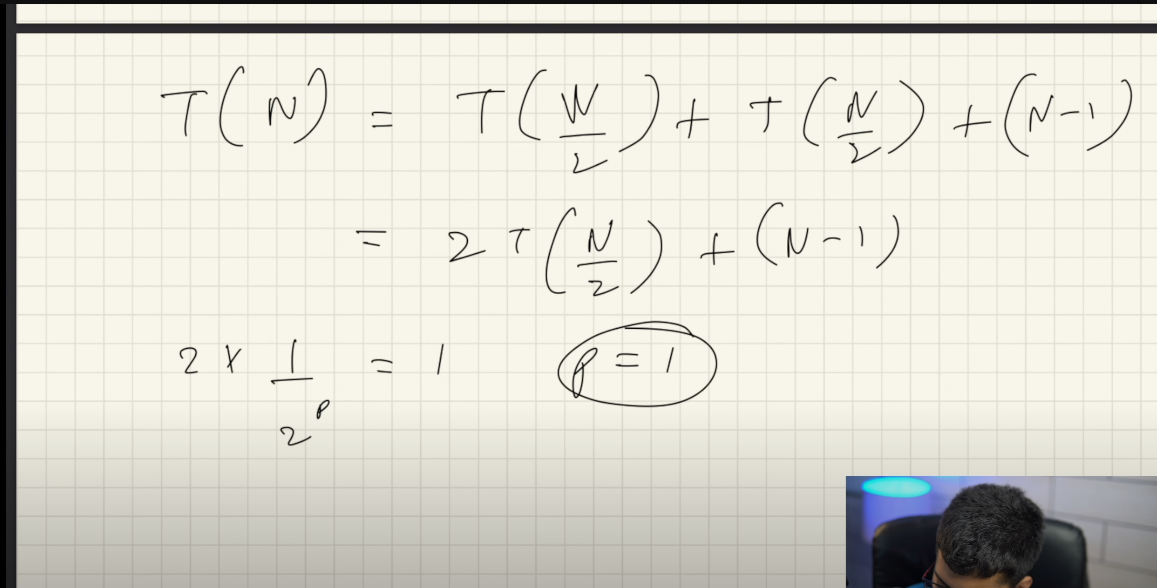 T(N) = T(N/2) + T(N/2) + (N-1)
= 2T(N/2) + (N-1)
2 × 1/2^p = 1 p = 1